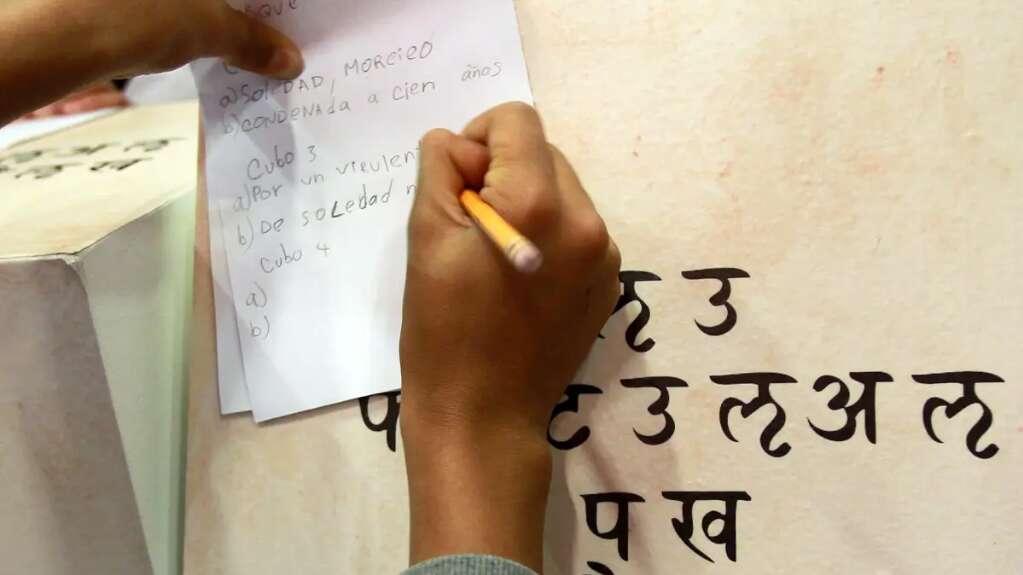 que
a) SoleDAD, MORCIELO
b) CONDENAda a cien años
Cubo 3
a) Por un virulent
b) De soledad
Cubo 4
a)
b)
ऌ उ
ट उ ऌ अ ऌ
पू ख